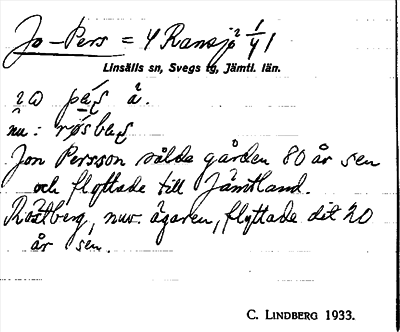 Jo-Pers = 4 Ransjö² 1/41
Linsälls sn, Svegs tg, Jämtl. län.
å.
nu:
Jon Persson sålde gården 80 år sen
och flyttade till Jämtland.
Röstberg, nuv. ägaren, flyttade dit 20
år sen.
C. LINDBERG 1933.